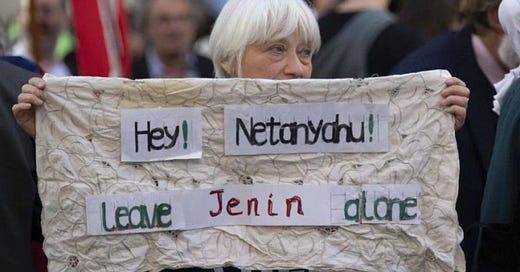 Hey! Netanyahu!
Leave Jenin alone